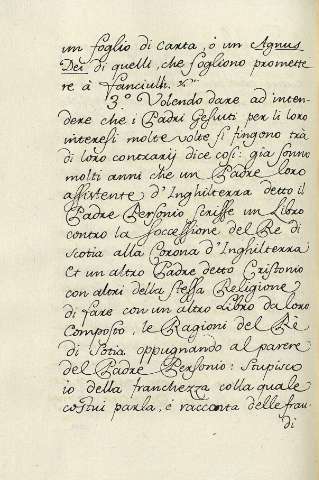 un foglio di Carta, ò un Agnus
Dei di quelli, che sogliono promette
re à fanciulli. xᵐ
3.° Volendo dare ad inten-
dere che i Padri Gesuiti per li loro
interesi molte volte si fingono trà
di loro contrarij dice così: già sonno
molti anni che un Padre loro
assistente d'Inghilterra detto il
Padre Personio scrisse un Libro
contro la soccessione del Re di
Scotia alla Corona d'Inghilterra
Et un altro Padre detto Cristonio
con altri della stessa Religione
di fare con un altro Libro da loro
Composto, le Ragioni del Rè
di Scotia oppugnando al parere
del Padre Personio: stupisco
io della franchezza colla quale
costui parla, è racconta delle frau-
di